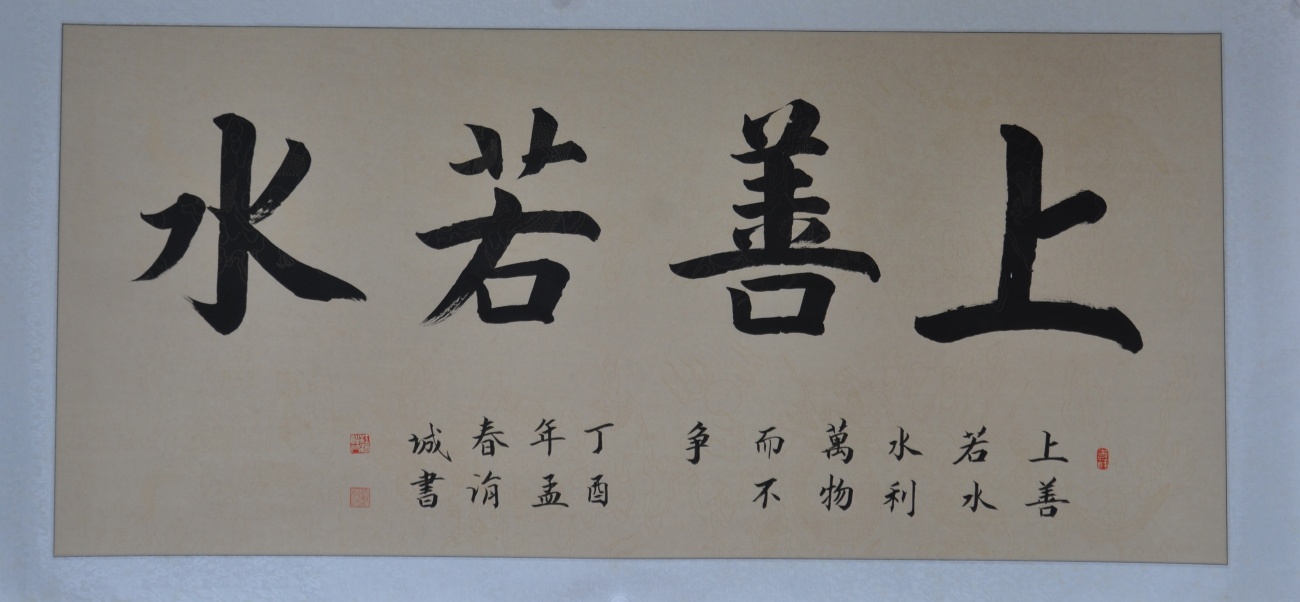 上善若水
上善
若水
水利
萬物
而不
争
丁酉
年孟
春
城書